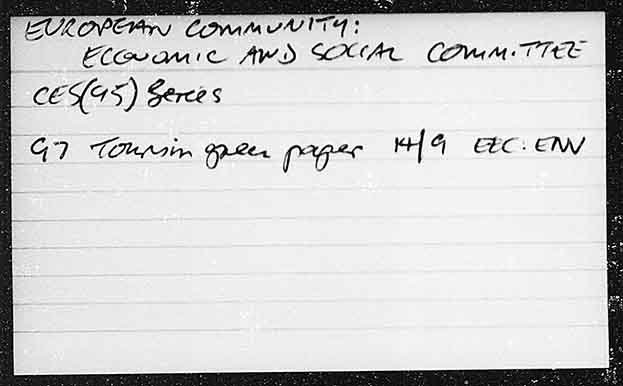 EUROPEAN COMMUNITY:
ECONOMIC AND SOCIAL COMMITTEE
CES(95) Series
97 Tourism green paper 14/9 EEC.ENV